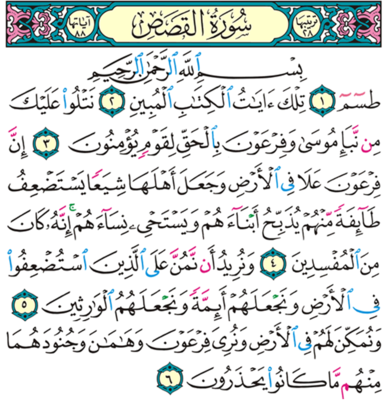 ترتيبها ٢٨ سُورَةُ القَصَصِ آياتها ٨٨
بِسْمِ ٱللَّهِ ٱلرَّحْمَٰنِ ٱلرَّحِيمِ
طسٓمٓ ١ تِلْكَ ءَايَٰتُ ٱلْكِتَٰبِ ٱلْمُبِينِ ٢ نَتْلُوا۟ عَلَيْكَ
مِن نَّبَإِ مُوسَىٰ وَفِرْعَوْنَ بِٱلْحَقِّ لِقَوْمٍ يُؤْمِنُونَ ٣ إِنَّ
فِرْعَوْنَ عَلَا فِى ٱلْأَرْضِ وَجَعَلَ أَهْلَهَا شِيَعًا يَسْتَضْعِفُ
طَآئِفَةً مِّنْهُمْ يُذَبِّحُ أَبْنَآءَهُمْ وَيَسْتَحْىِۦ نِسَآءَهُمْ ۚ إِنَّهُۥ كَانَ
مِنَ ٱلْمُفْسِدِينَ ٤ وَنُرِيدُ أَن نَّمُنَّ عَلَى ٱلَّذِينَ ٱسْتُضْعِفُوا۟
فِى ٱلْأَرْضِ وَنَجْعَلَهُمْ أَئِمَّةً وَنَجْعَلَهُمُ ٱلْوَٰرِثِينَ ٥
وَنُمَكِّنَ لَهُمْ فِى ٱلْأَرْضِ وَنُرِىَ فِرْعَوْنَ وَهَٰمَٰنَ وَجُنُودَهُمَا
مِنْهُم مَّا كَانُوا۟ يَحْذَرُونَ ٦